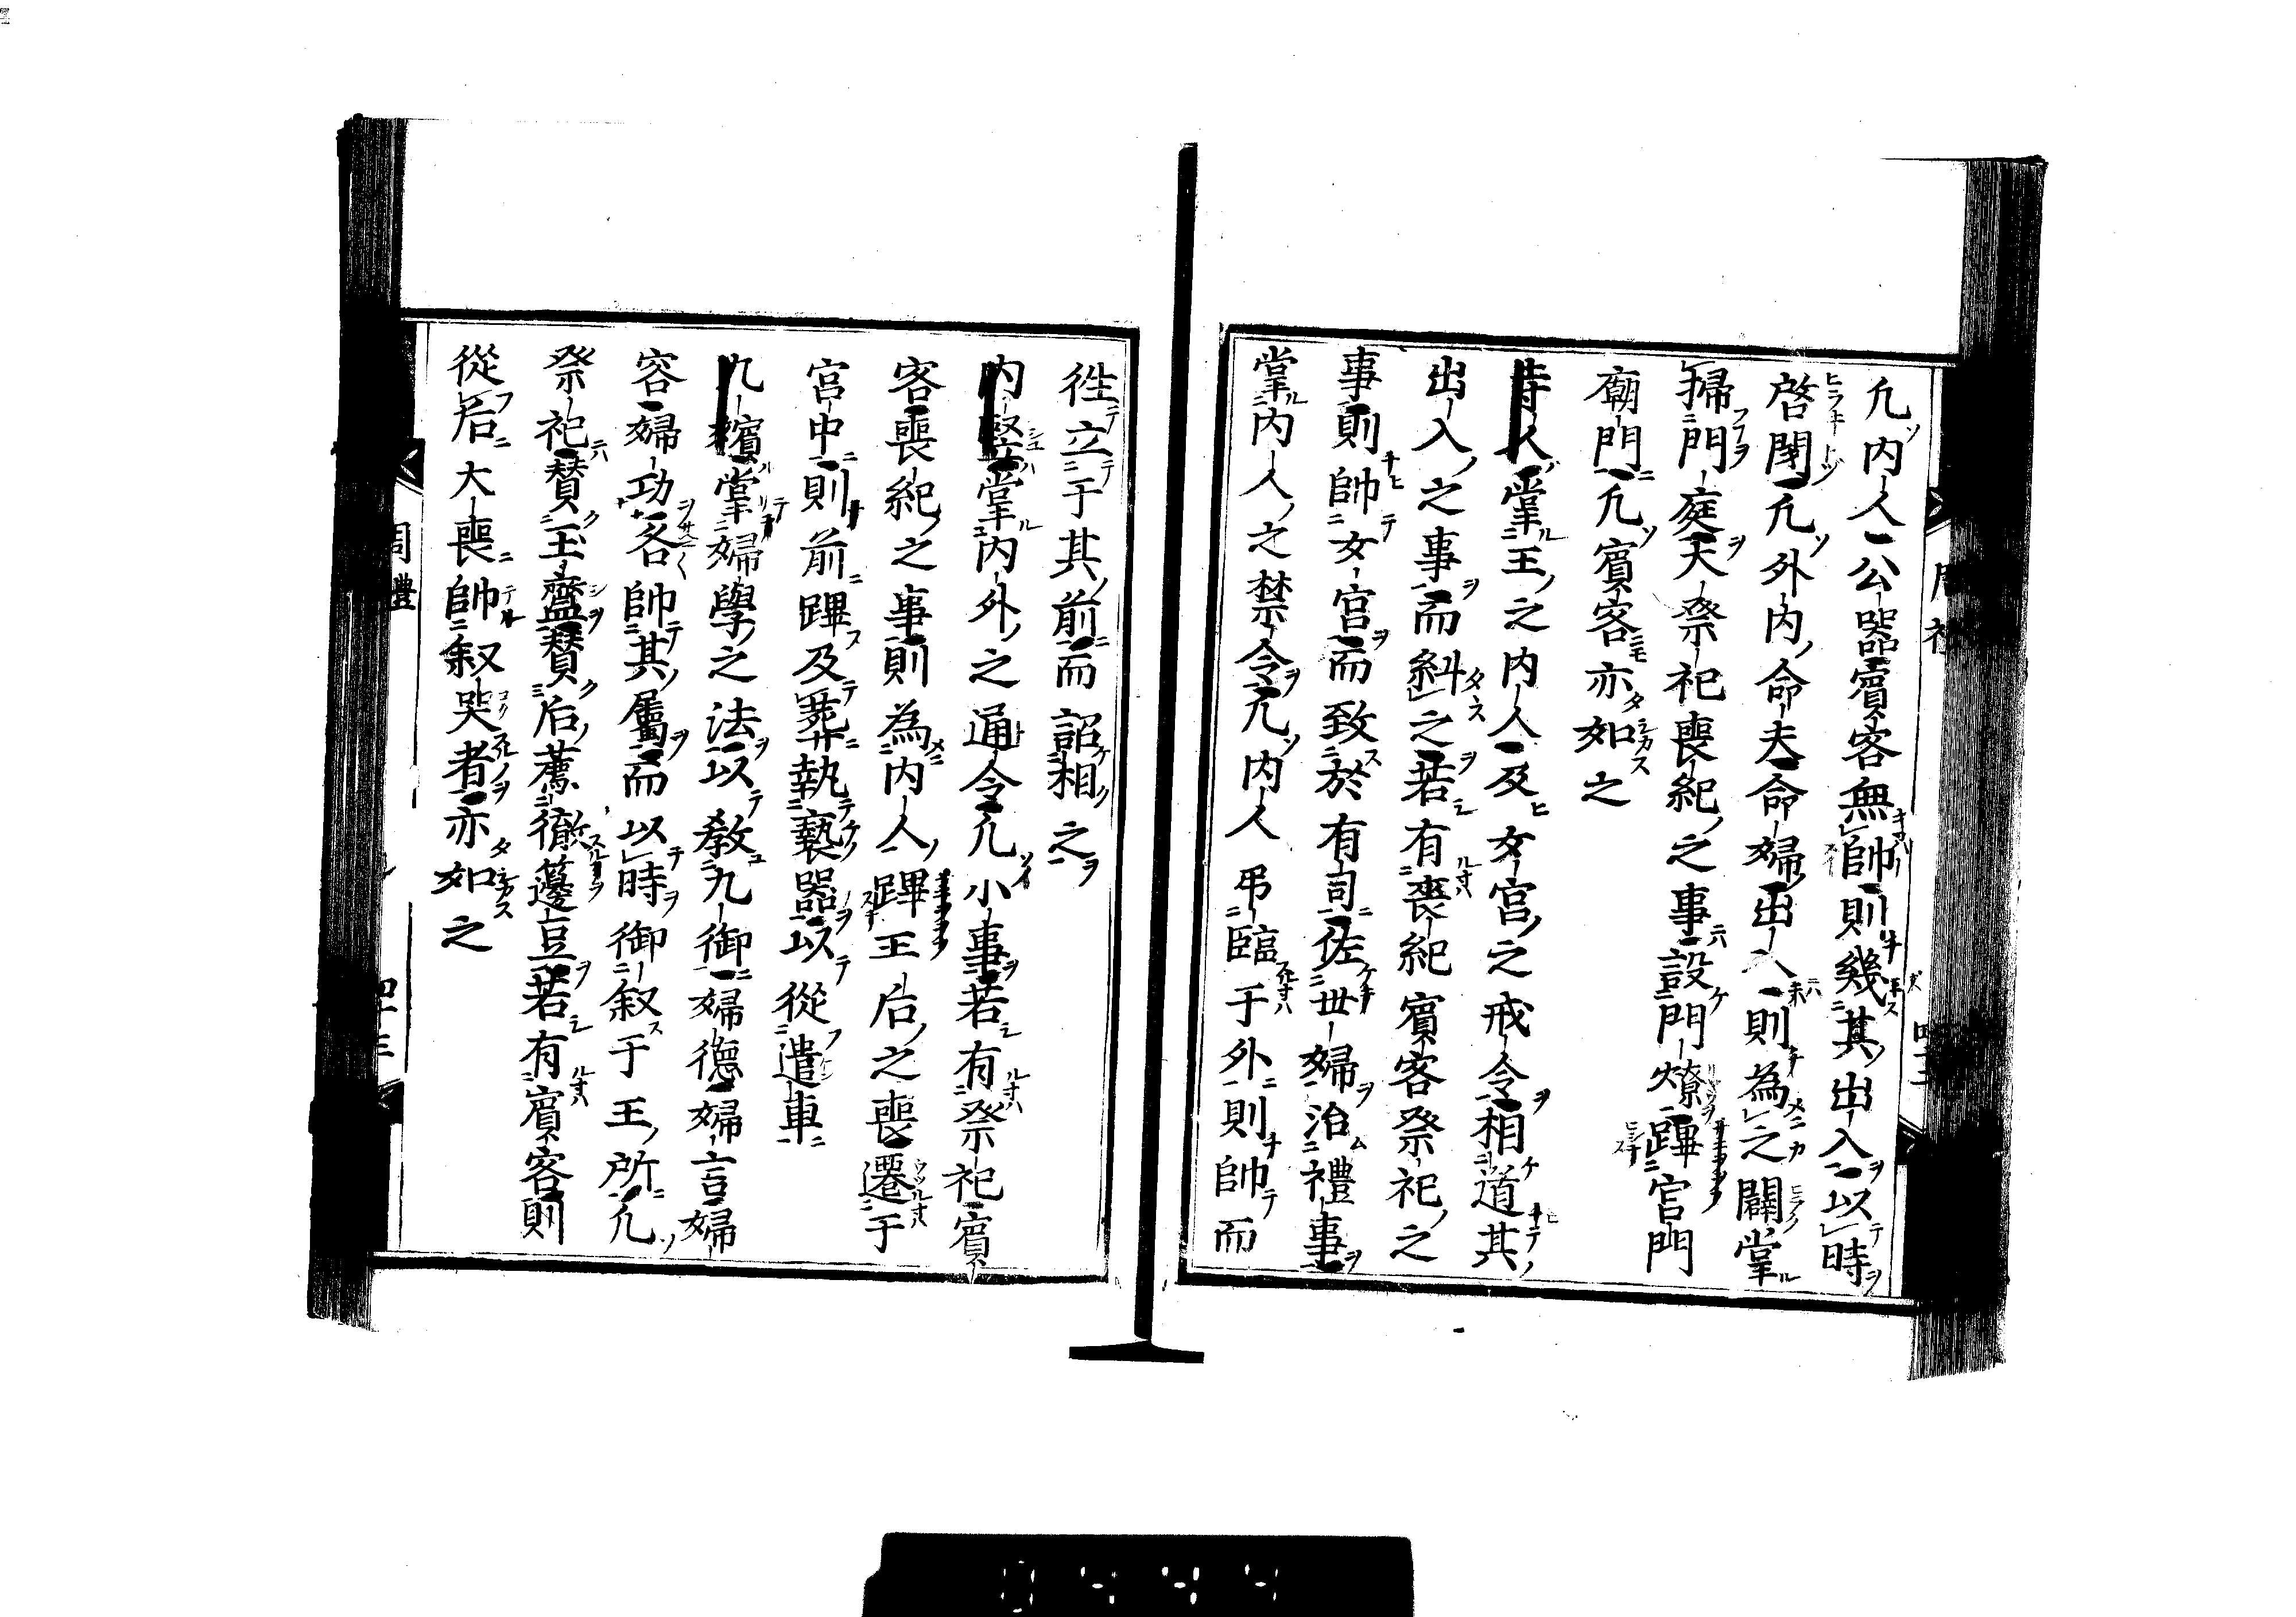 凢内人公器賓客無帥則幾其出入以時
啓閉凢外内命夫命婦出入則為之闢掌
掃門庭大祭祀喪紀之事設門燎蹕宮門
廟門凢賓客亦如之
寺人掌王之内人及女宮之戒令相道其
出入之事而糾之若有喪紀賓客祭祀之
事則帥女宮而致於有司佐世婦治禮事
掌内人之禁令凢内人弔臨于外則帥而
徃立于其前而詔相之
内豎掌内外之通令凢小事若有祭祀賓
客喪紀之事則為内人蹕王后之喪遷于
宮中則前蹕及葬執褻器以從遣車
九嬪掌婦學之法以教九御婦德婦言婦
容婦功各帥其屬而以時御叙于王所凢
祭祀賛玉齍賛后薦徹籩豆若有賓客則
從后大喪帥叙哭者亦如之
周禮